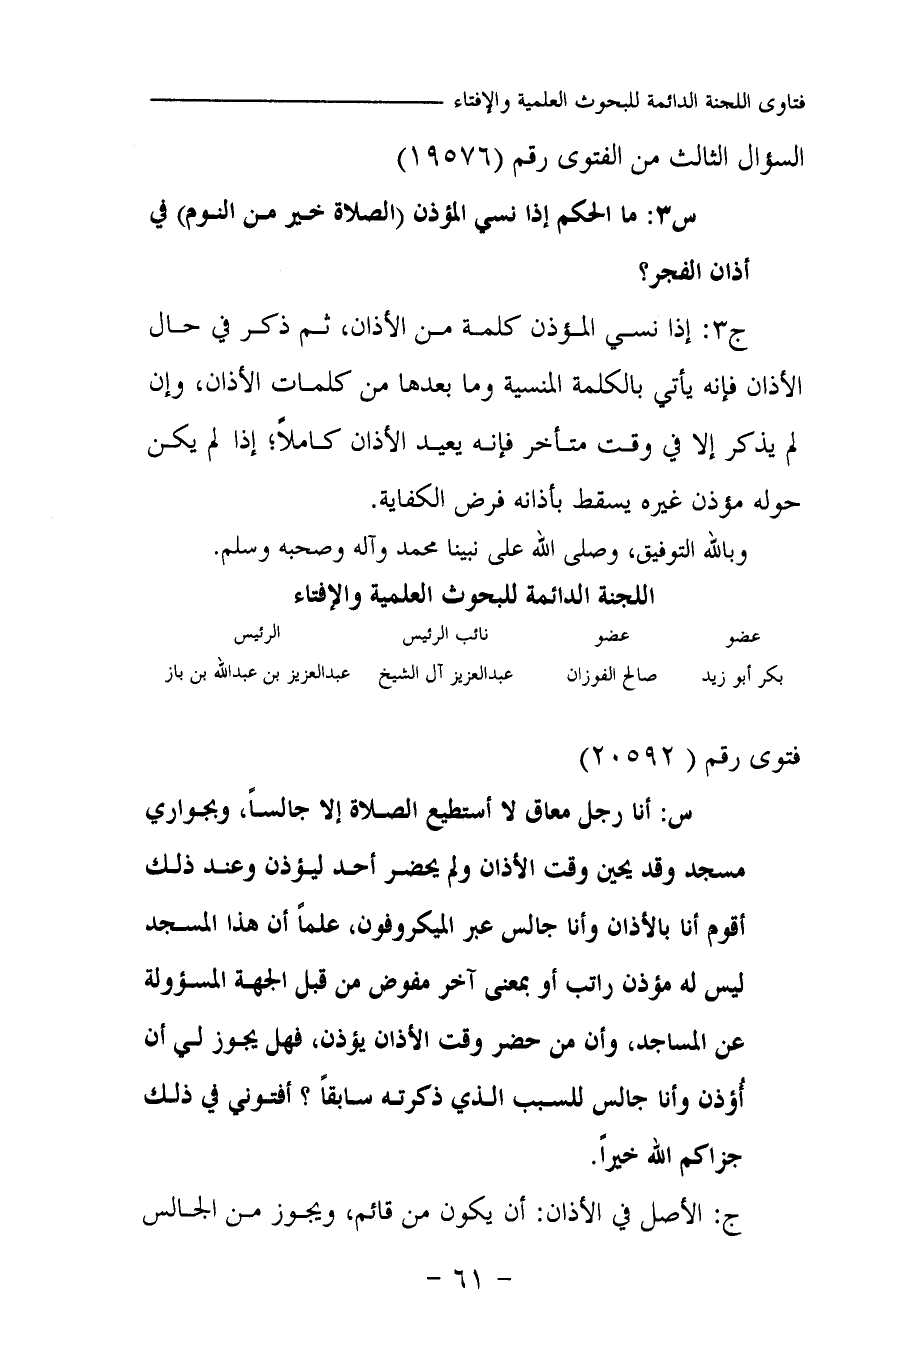 فتاوى اللجنة الدائمة للبحوث العلمية والإفتاء
السؤال الثالث من الفتوى رقم (١٩٥٧٦)
س٣: ما الحكم إذا نسي المؤذن (الصلاة خير من النوم) في
أذان الفجر؟
ج٣: إذا نسي المؤذن كلمة من الأذان، ثم ذكر في حال
الأذان فإنه يأتي بالكلمة المنسية وما بعدها من كلمات الأذان، وإن
لم يذكر إلا في وقت متأخر فإنه يعيد الأذان كاملاً؛ إذا لم يكن
حوله مؤذن غيره يسقط بأذانه فرض الكفاية.
وبالله التوفيق، وصلى الله على نبينا محمد وآله وصحبه وسلم.
اللجنة الدائمة للبحوث العلمية والإفتاء
عضو عضو نائب الرئيس الرئيس
بكر أبو زيد صالح الفوزان عبدالعزيز آل الشيخ عبدالعزيز بن عبدالله بن باز
فتوى رقم ( ٢٠٥٩٢)
س: أنا رجل معاق لا أستطيع الصلاة إلا جالساً، وبجواري
مسجد وقد يحين وقت الأذان ولم يحضر أحد ليؤذن وعند ذلك
أقوم أنا بالأذان وأنا جالس عبر الميكروفون، علماً أن هذا المسجد
ليس له مؤذن راتب أو بمعنى آخر مفوض من قبل الجهة المسؤولة
عن المساجد، وأن من حضر وقت الأذان يؤذن، فهل يجوز لي أن
أُؤذن وأنا جالس للسبب الذي ذكرته سابقاً ؟ أفتوني في ذلك
جزاكم الله خيراً.
ج: الأصل في الأذان: أن يكون من قائم، ويجوز من الجالس
- ٦١ -